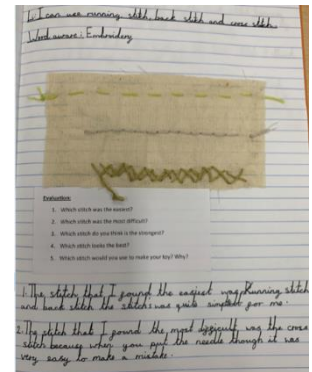 L: I can use running stitch, back stitch and cross stitch.
Word aware: Embroidery
Evaluation:
1. Which stitch was the easiest?
2. Which stitch was the most difficult?
3. Which stitch do you think is the strongest?
4. Which stitch looks the best?
5. Which stitch would you use to make your key? Why?
1. The stitch that I found the easiest was Running stitch
and back stitch the stitch was quite simplest for me.
2. The stitch that I found the most difficult was the cross
stitch because when you put the needle though it was
very easy to make a mistake.